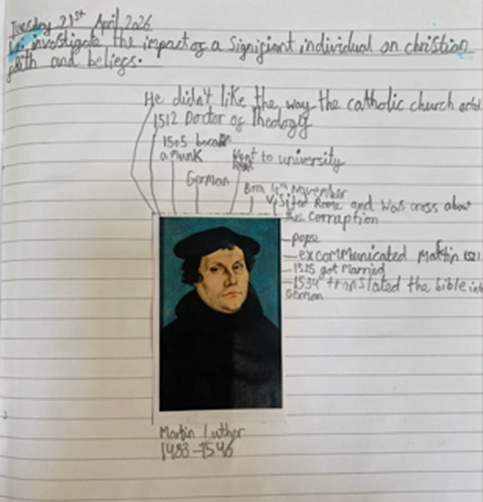 Tuesday 21st April 2026
L.i. investigate the impact of a significant individual on christian
faith and beliegs.
He didn't like the way the catholic church acted
1512 Doctor of Theology
1505 became
a munk
Went to university
German
Born 10th November
Visited Rome and was cross about
the corruption
pope
excommunicated Martin 1521
1525 got married
1534 translated the bible into
German
Martin Luther
1483-1546